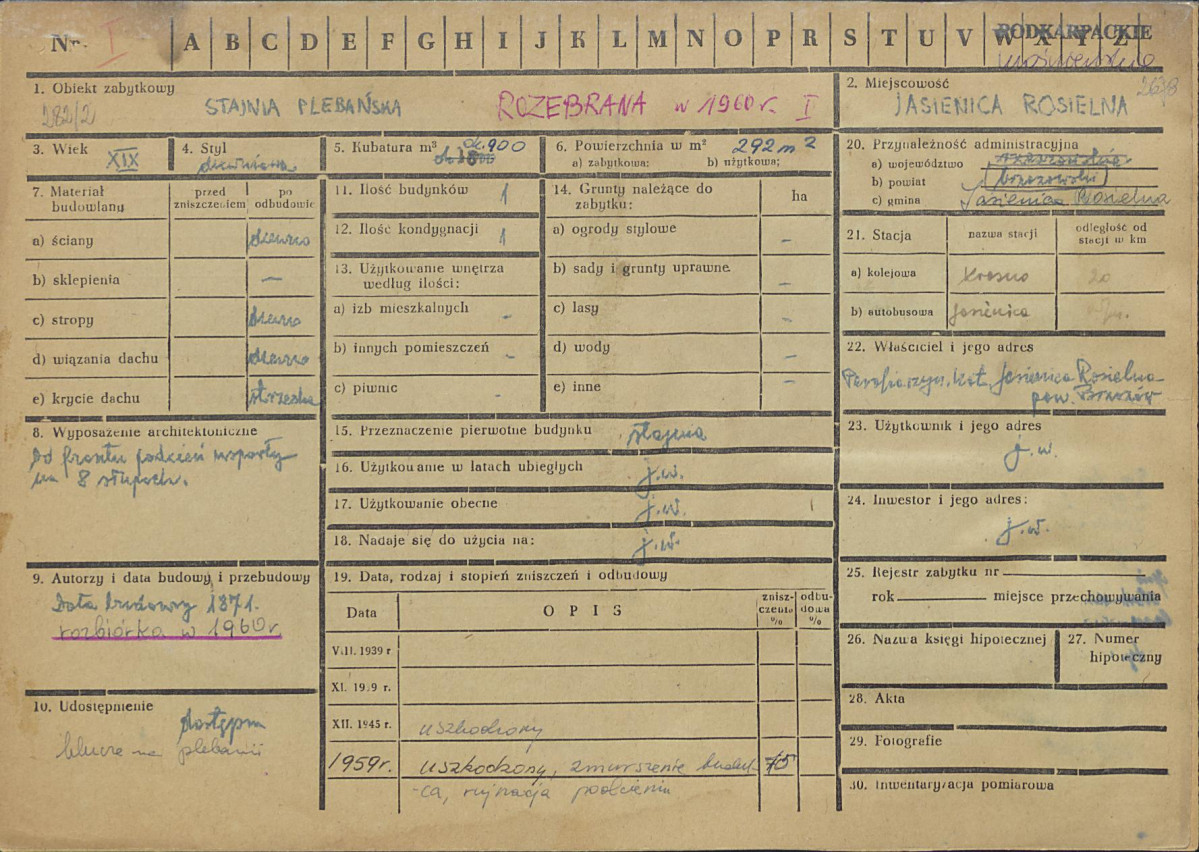 Nr. I A B C D E F G H I J K L M N O P R S T U V W X Y Z
PODKARPACKIE
1. Obiekt zabytkowy
282/2 STAJNIA PLEBAŃSKA ROZEBRANA w 1960 r. I
2. Miejscowość
JASIENICA ROSIELNA
3. Wiek XIX
4. Styl drewniana
5. Kubatura m³ ok. 900
6. Powierzchnia w m² 292 m²
a) zabytkowa: b) użytkowa;
20. Przynależność administracyjna
a) województwo rzeszowskie
b) powiat brzozowski
c) gmina Jasienica Rosielna
7. Materiał budowlany
przed zniszczeniem
po odbudowie
a) ściany drewno
b) sklepienia —
c) stropy drewno
d) wiązania dachu drewno
e) krycie dachu strzecha
11. Ilość budynków 1
12. Ilość kondygnacji 1
13. Użytkowanie wnętrza
według ilości:
a) izb mieszkalnych -
b) innych pomieszczeń -
c) piwnic -
14. Grunty należące do
zabytku: ha
a) ogrody stylowe -
b) sady i grunty uprawne -
c) lasy -
d) wody -
e) inne -
21. Stacja
nazwa stacji
odległość od
stacji w km
a) kolejowa Krosno 20
b) autobusowa Jasienica
22. Właściciel i jego adres
Parafia rzym. kat. Jasienica Rosielna
pow. Brzozów
8. Wyposażenie architektoniczne
Od frontu podcień wsparty
na 8 słupach.
15. Przeznaczenie pierwotne budynku stajnia
16. Użytkowanie w latach ubiegłych j.w.
17. Użytkowanie obecne j.w.
18. Nadaje się do użycia na: j.w.
23. Użytkownik i jego adres
j.w.
24. Inwestor i jego adres:
j.w.
9. Autorzy i data budowy i przebudowy
Data budowy 1871.
rozbiórka w 1960 r
19. Data, rodzaj i stopień zniszczeń i odbudowy
Data
OPIS
znisz-
czenia
%
odbu-
dowa
%
VIII. 1939 r
XI. 1939 r.
XII. 1945 r. uszkodzony
1959 r. uszkodzony, zmurszenie budul- 75
-ca, rujnacja podcienia
25. Rejestr zabytku nr
rok miejsce przechowywania
26. Nazwa księgi hipotecznej
27. Numer
hipoteczny
28. Akta
29. Fotografie
30. Inwentaryzacja pomiarowa
10. Udostępnienie
dostępna
klucze na plebanii